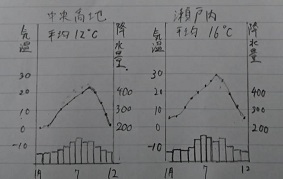 中央高地
平均12°C
気温
降水量
30
20
10
0
-10
400
300
200
1月
7
12
瀬戸内
平均16°C
気温
降水量
30
20
10
0
-10
400
300
200
1月
7
12